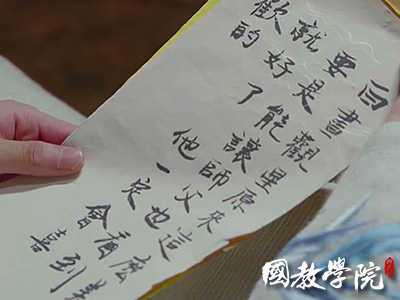 白晝觀星原來這麼美
要是能讓師父也看到
就好了他一定會喜
歡的
國教學院